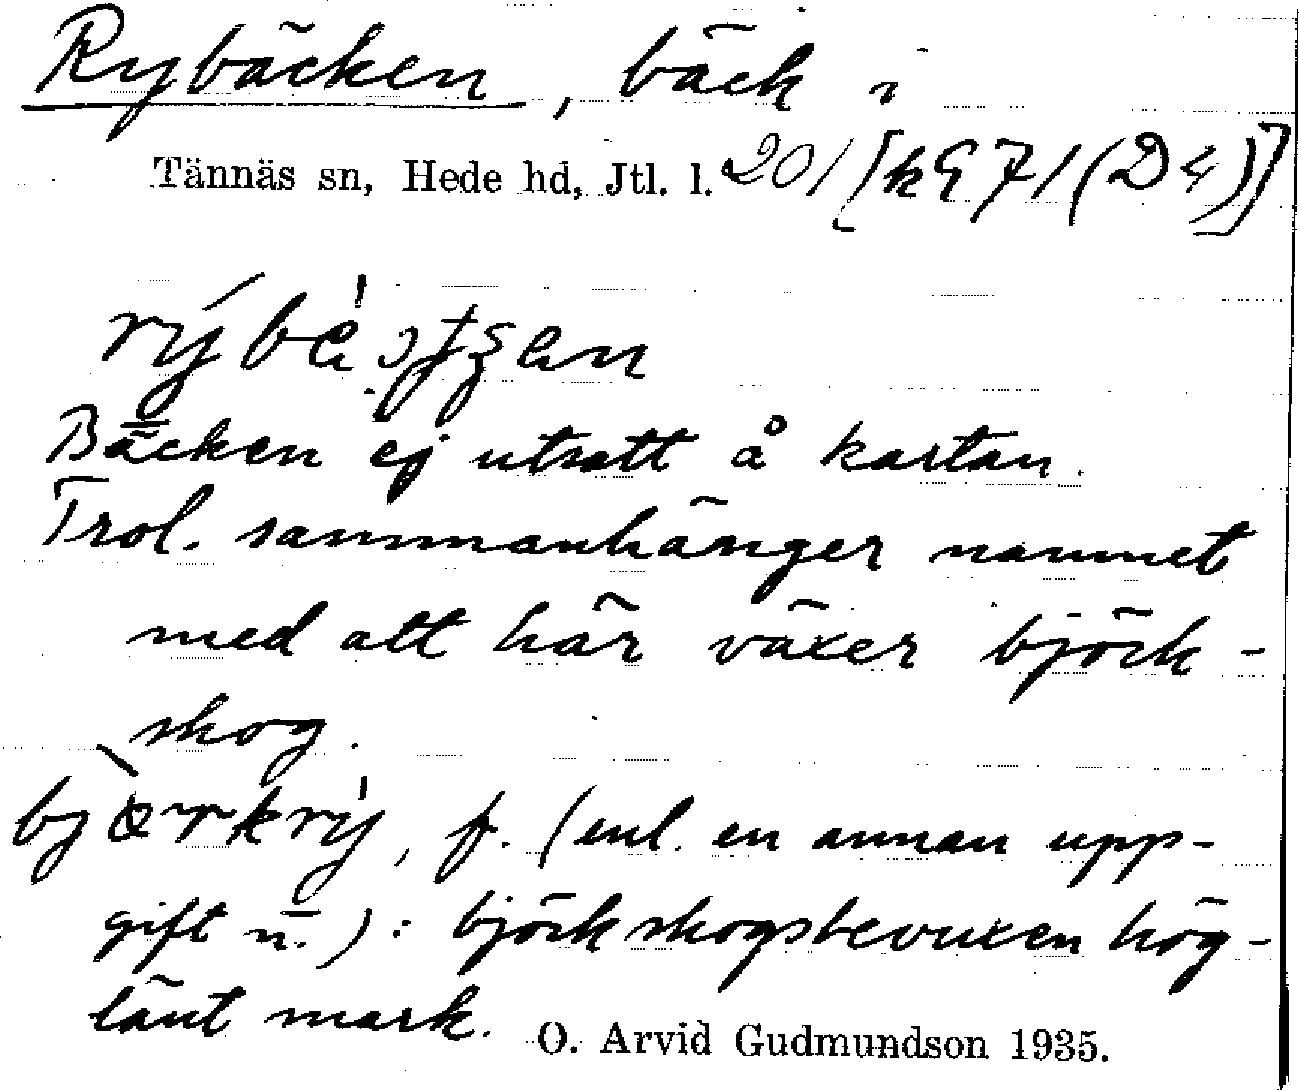 Rybäcken, bäck i
Tännäs sn, Hede hd, Jtl. l. 201 [k G 71 (D4)]
Bäcken ej utsatt å kartan.
Trol. sammanhänger namnet
med att här växer björk-
skog.
bjørkrý, f. (enl. en annan upp-
gift n.): björkskogsbevuxen hög-
länt mark.
O. Arvid Gudmundson 1935.